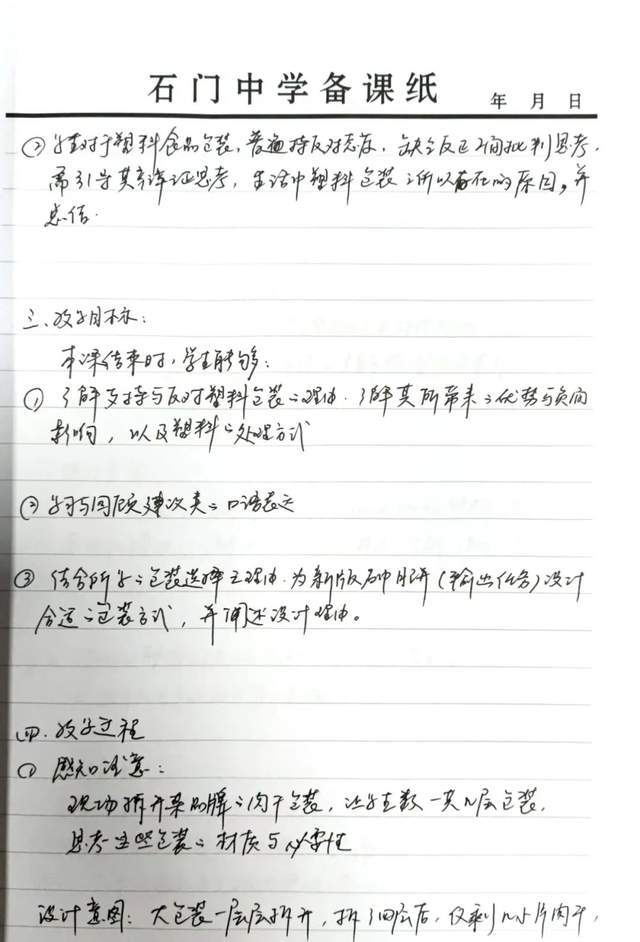 石门中学备课纸
年 月 日
② 学生对于塑料食品包装，普遍持反对态度，缺乏反正2面批判思考，
需引导其辩证思考，生活中塑料包装之所以存在的原因，并
总结.
三、教学目标：
本课结束时，学生能够：
① 了解支持与反对塑料包装之理由，了解其所带来之优势与负面
影响，以及塑料之处理方式
② 学习与回顾建议类之口语表达
③ 结合所学之包装选择之理由，为新版石中月饼（输出任务）设计
合适之包装方式，并阐述设计理由。
四. 教学过程
① 感知注意：
现场拆开某品牌之肉干包装，让学生数一共几层包装，
思考这些包装之材质与必要性
设计意图：大包装一层层拆开，拆了四层后，仅剩几小片肉干，